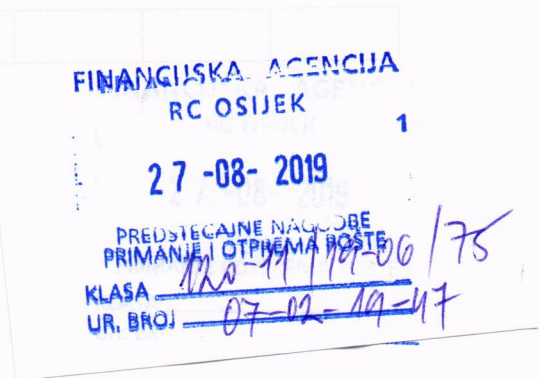 FINANCIJSKA AGENCIJA
RC OSIJEK
1
27 -08- 2019
PREDSTEČAJNE NAGODBE
PRIMANJE I OTPREMA POŠTE
KLASA 120-11/19-06/75
UR. BROJ 07-02-19-47